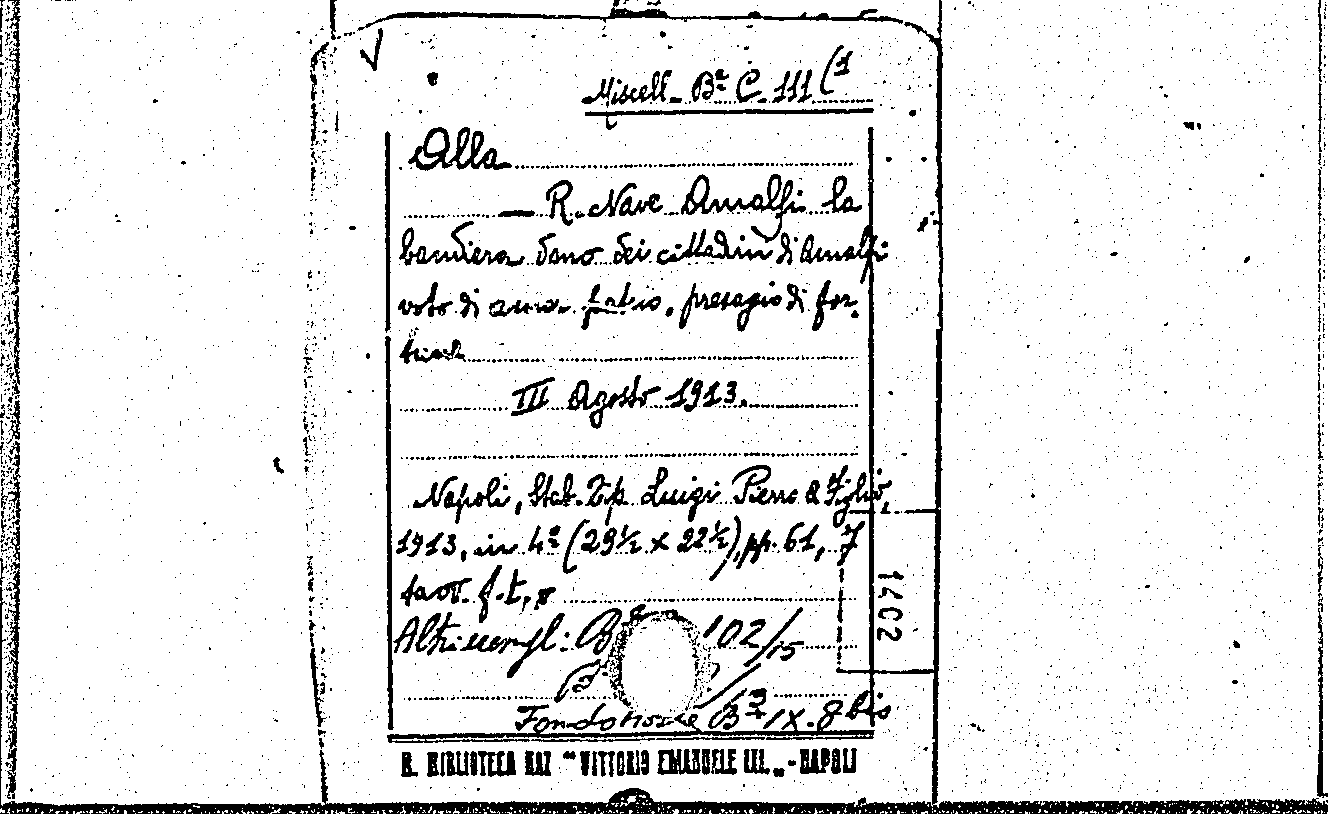 Miscell. Bª C. 111 (1
Alla
— R. Nave Amalfi la
bandiera dono dei cittadini di Amalfi
voto di amor patrio, presagio di for-
tuna
III Agosto 1913.
Napoli, Stab. Tip. Luigi Pierro & Figlio,
1913, in 4º (29½ x 22½), pp. 61, 7
tavv. f.t.,
Altri esempl: B 102/15
Fondo Bª IX. 8 bis
1402
R. BIBLIOTECA NAZ "VITTORIO EMANUELE III." - NAPOLI